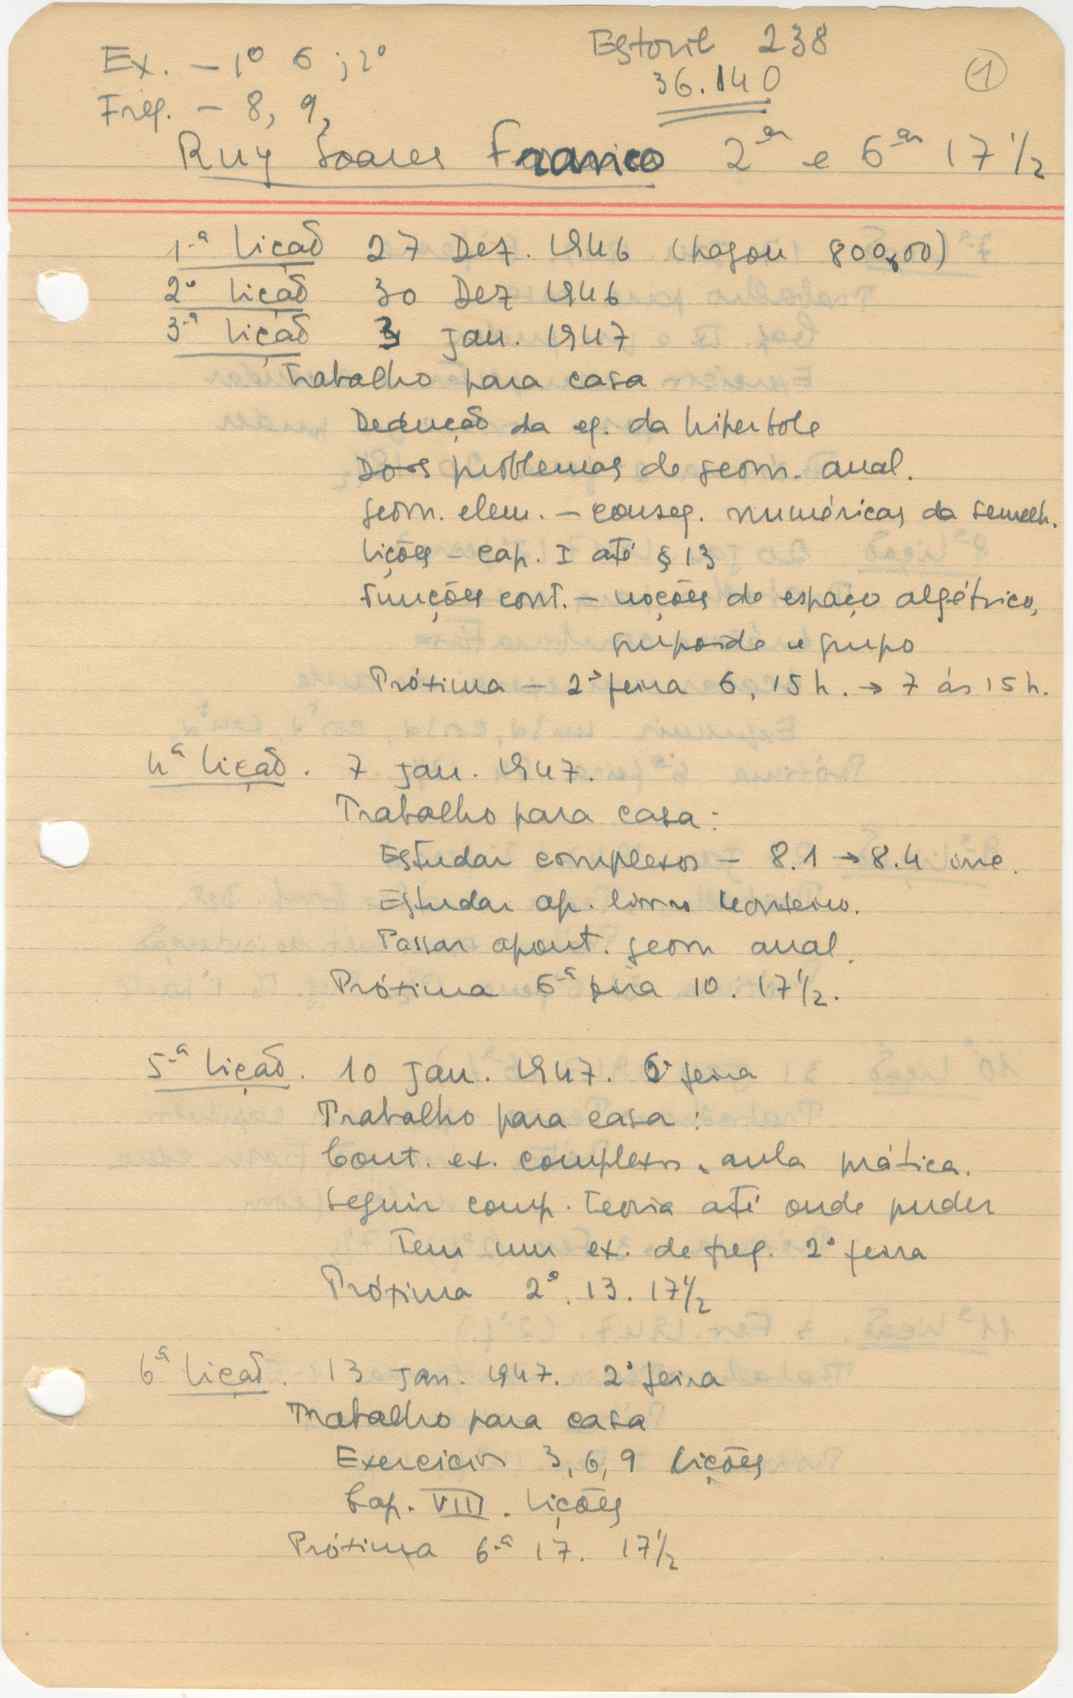 Ex. — 1º 6 ; 2º
Estoril 238
36.140
1
Freq. — 8, 9,
Ruy Soares Franco 2ªs e 6ªs 17 1/2
1.ª lição 27 Dez. 1946 (pagou 800$00)
2ª lição 30 Dez 1946
3.ª lição 3 Jan. 1947
Trabalho para casa
Dedução da eq. da hiperbole
Dois problemas de geom. anal.
Geom. elem. — conseq. numéricas da semelh.
Lições — cap. I até § 13
Funções cont. — noções de espaço algébrico,
grupoide e grupo
Próxima — 2ª feira 6, 15 h. → 7 às 15 h.
4ª lição. 7 Jan. 1947.
Trabalho para casa:
Estudar complexos — 8.1 → 8.4 inc.
Estudar ap. livro Monteiro.
Passar apont. geom anal.
Próxima 6.ª feira 10. 17 1/2.
5.ª lição. 10 Jan. 1947. 6ª feira
Trabalho para casa:
Cont. ex. complexos, aula prática.
Seguir comp. teoria até onde puder
Tem um ex. de freq. 2ª feira
Próxima 2ª. 13. 17 1/2
6ª lição. 13 Jan. 1947. 2ª feira
Trabalho para casa
Exercicios 3, 6, 9 Lições
Cap. VIII. Lições
Próxima 6.ª 17. 17 1/2